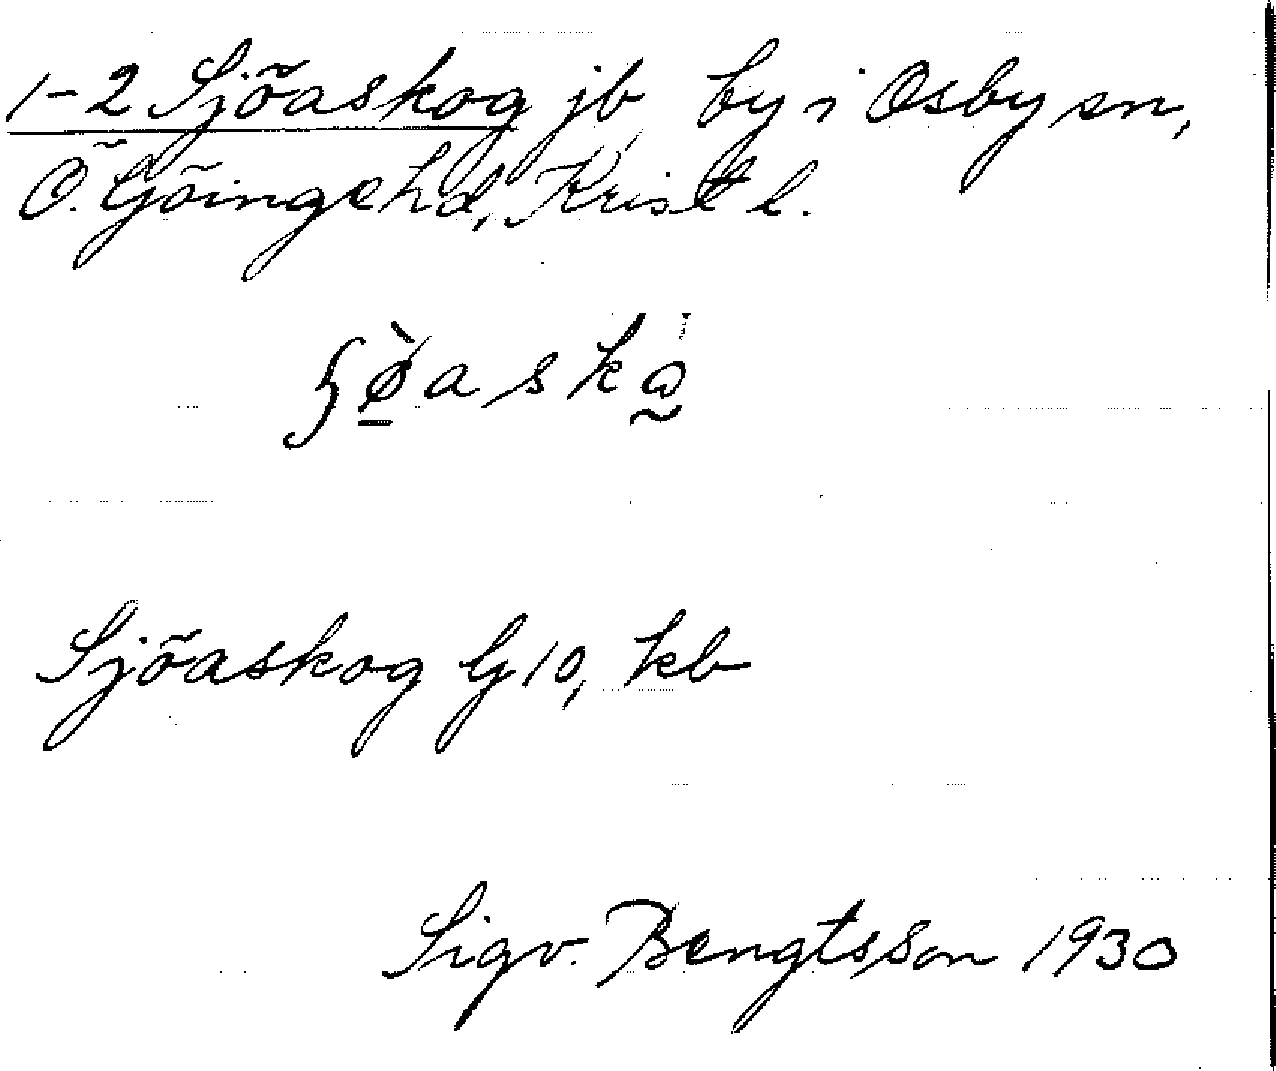 1-2 Sjöaskog jb by i Osby sn,
Ö. Göinge hd, Krist l.
Sjöaskog G10, kb
Sigv. Bengtsson 1930